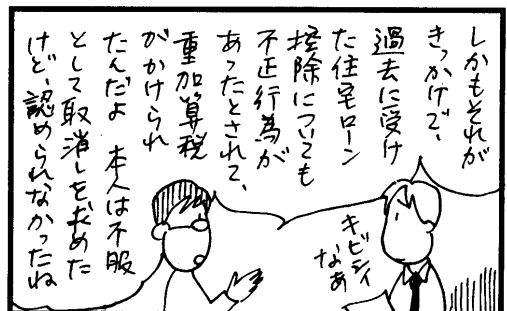 しかもそれが
きっかけで、
過去に受け
た住宅ローン
控除についても
不正行為が
あったとされて、
重加算税
がかけられ
たんだよ 本人は不服
として取消しを求めた
けど、認められなかったね
キビシイ
なあ